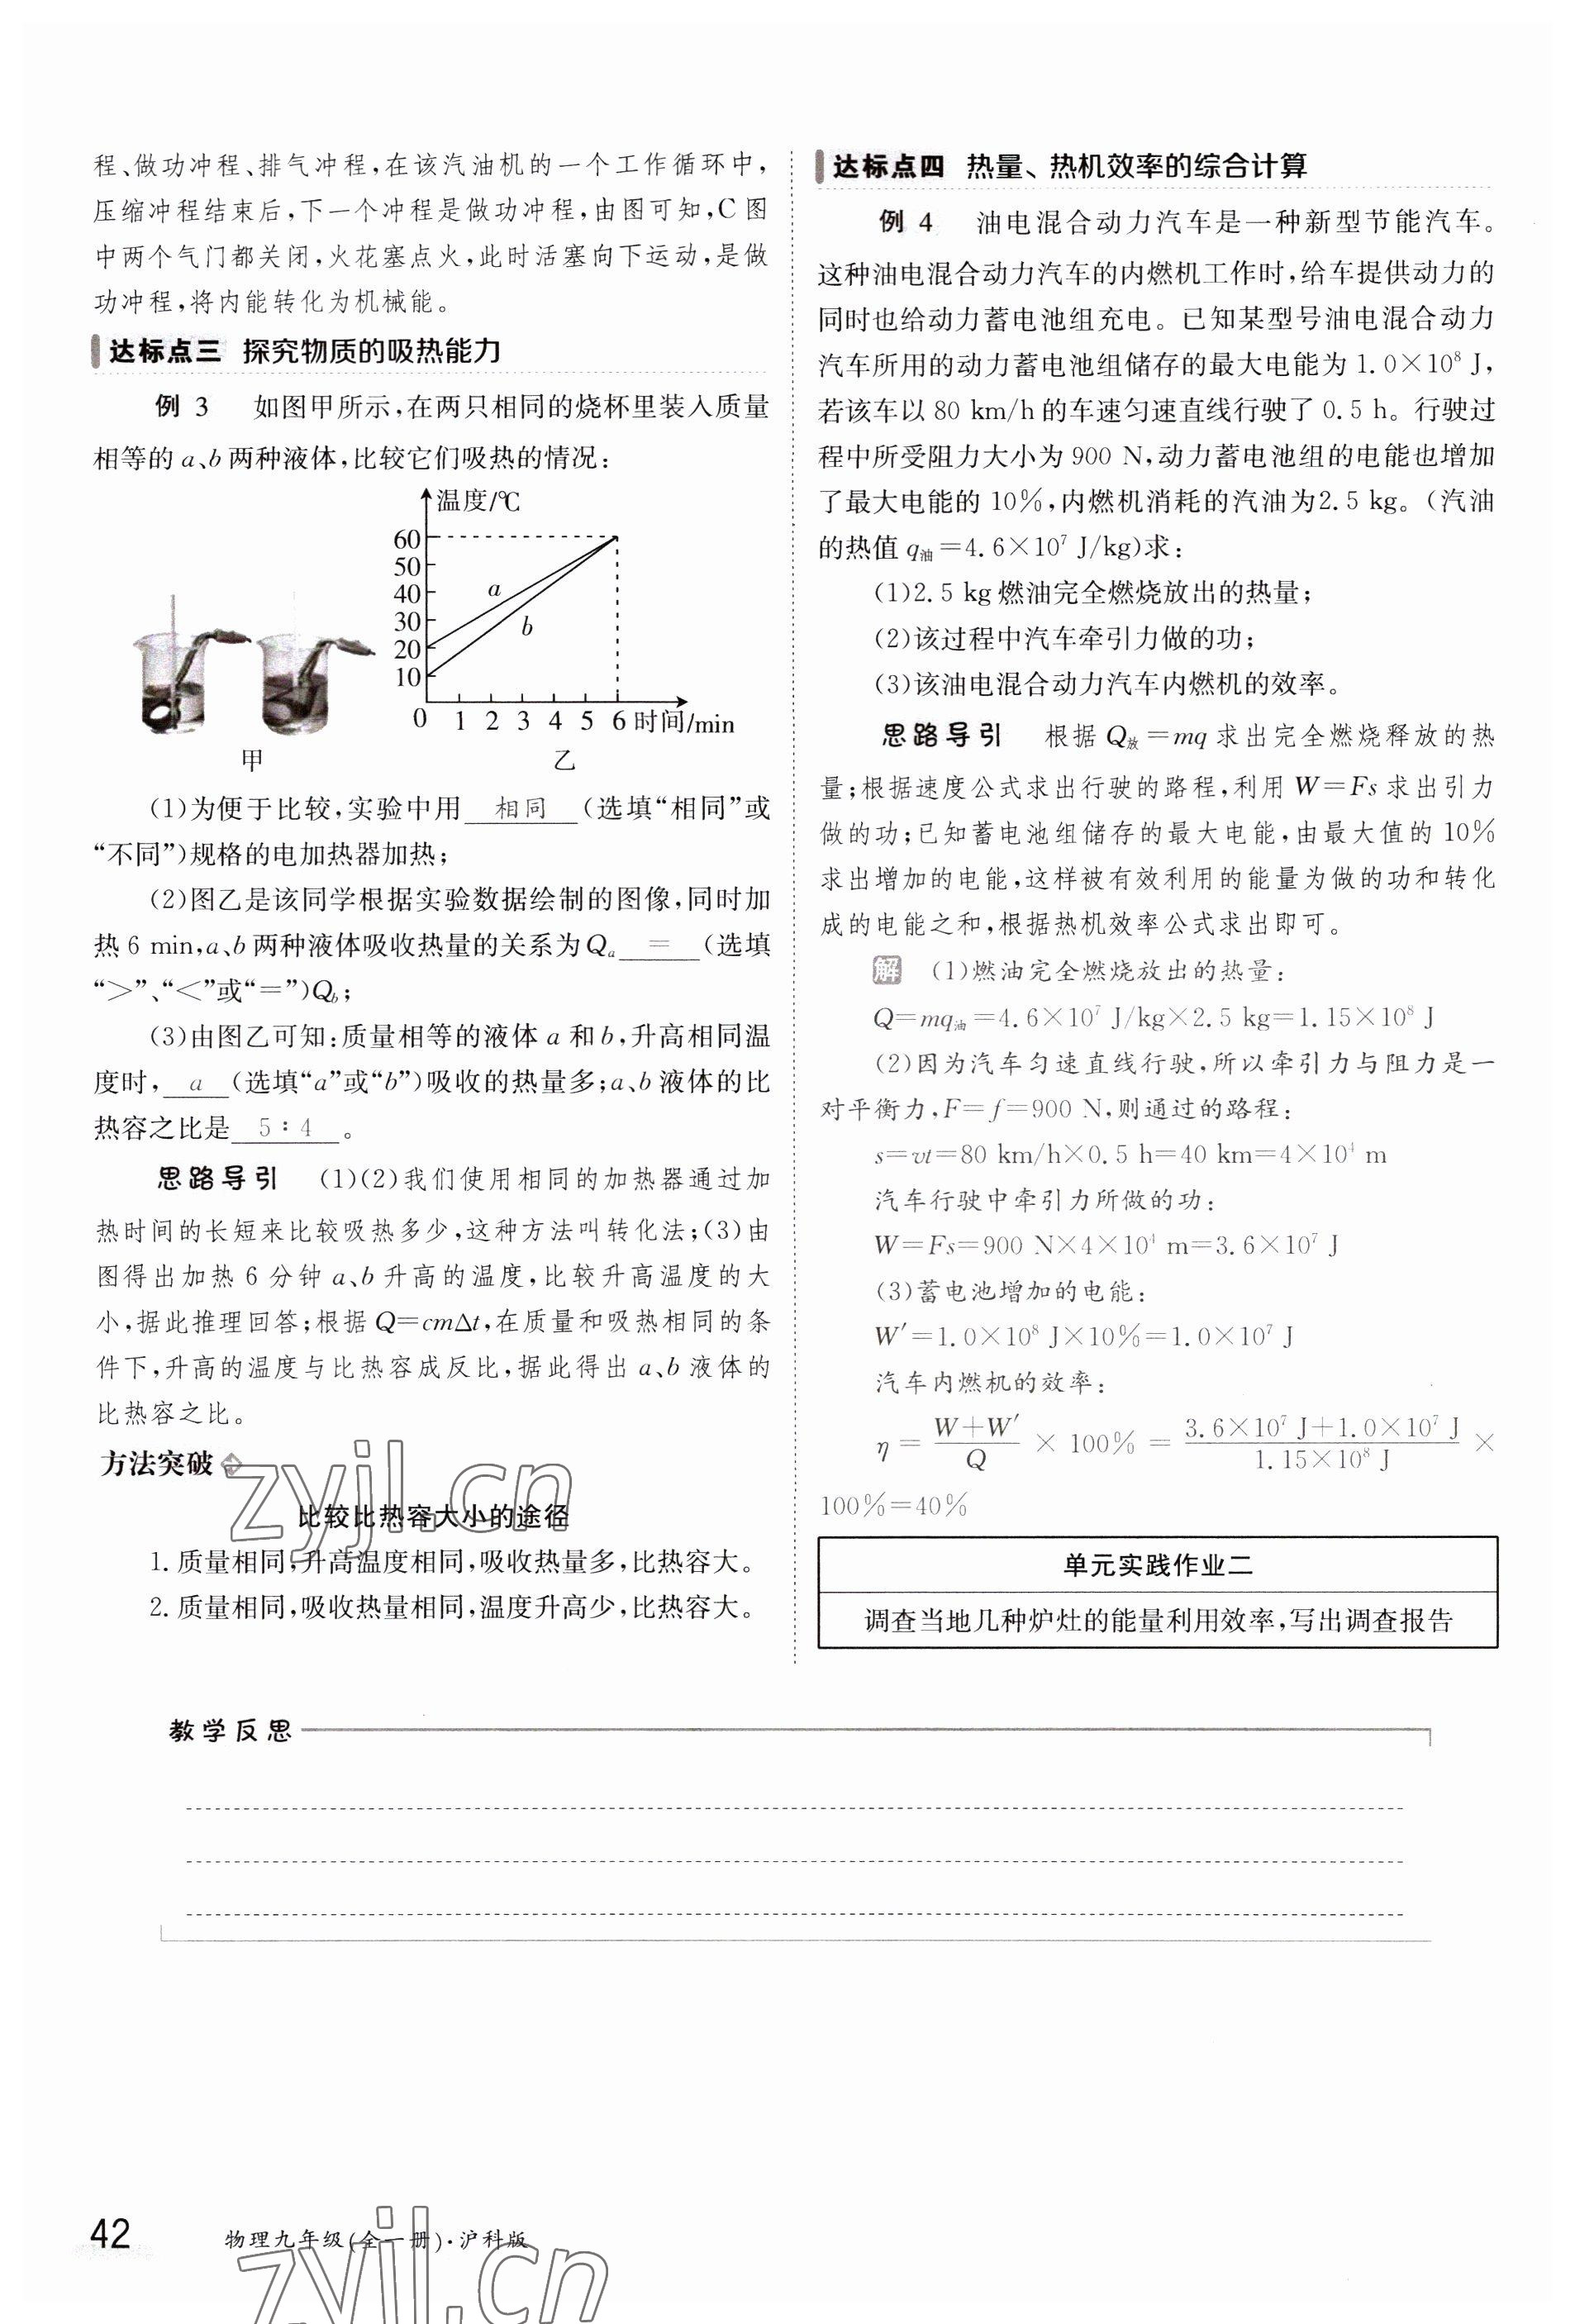 程、做功冲程、排气冲程,在该汽油机的一个工作循环中,
压缩冲程结束后,下一个冲程是做功冲程,由图可知,C图
中两个气门都关闭,火花塞点火,此时活塞向下运动,是做
功冲程,将内能转化为机械能。
达标点三 探究物质的吸热能力
例 3 如图甲所示,在两只相同的烧杯里装入质量
相等的 a、b 两种液体,比较它们吸热的情况:
温度/℃
60
50
40
30
20
10
a
b
0 1 2 3 4 5 6 时间/min
甲
乙
(1)为便于比较,实验中用 相同 (选填“相同”或
“不同”)规格的电加热器加热;
(2)图乙是该同学根据实验数据绘制的图像,同时加
热 6 min,a、b 两种液体吸收热量的关系为 Qₐ = (选填
“>”、“<”或“=”)Q_b;
(3)由图乙可知:质量相等的液体 a 和 b,升高相同温
度时, a (选填“a”或“b”)吸收的热量多;a、b 液体的比
热容之比是 5∶4 。
思路导引 (1)(2)我们使用相同的加热器通过加
热时间的长短来比较吸热多少,这种方法叫转化法;(3)由
图得出加热 6 分钟 a、b 升高的温度,比较升高温度的大
小,据此推理回答;根据 Q=cmΔt,在质量和吸热相同的条
件下,升高的温度与比热容成反比,据此得出 a、b 液体的
比热容之比。
方法突破
比较比热容大小的途径
1. 质量相同,升高温度相同,吸收热量多,比热容大。
2. 质量相同,吸收热量相同,温度升高少,比热容大。
zyjl.cn
达标点四 热量、热机效率的综合计算
例 4 油电混合动力汽车是一种新型节能汽车。
这种油电混合动力汽车的内燃机工作时,给车提供动力的
同时也给动力蓄电池组充电。已知某型号油电混合动力
汽车所用的动力蓄电池组储存的最大电能为 1.0×10⁸ J,
若该车以 80 km/h 的车速匀速直线行驶了 0.5 h。行驶过
程中所受阻力大小为 900 N,动力蓄电池组的电能也增加
了最大电能的 10%,内燃机消耗的汽油为2.5 kg。(汽油
的热值 q油=4.6×10⁷ J/kg)求:
(1)2.5 kg 燃油完全燃烧放出的热量;
(2)该过程中汽车牵引力做的功;
(3)该油电混合动力汽车内燃机的效率。
思路导引 根据 Q放=mq 求出完全燃烧释放的热
量;根据速度公式求出行驶的路程,利用 W=Fs 求出引力
做的功;已知蓄电池组储存的最大电能,由最大值的 10%
求出增加的电能,这样被有效利用的能量为做的功和转化
成的电能之和,根据热机效率公式求出即可。
解 (1)燃油完全燃烧放出的热量:
Q=mq油=4.6×10⁷ J/kg×2.5 kg=1.15×10⁸ J
(2)因为汽车匀速直线行驶,所以牵引力与阻力是一
对平衡力,F=f=900 N,则通过的路程:
s=vt=80 km/h×0.5 h=40 km=4×10⁴ m
汽车行驶中牵引力所做的功:
W=Fs=900 N×4×10⁴ m=3.6×10⁷ J
(3)蓄电池增加的电能:
W′=1.0×10⁸ J×10%=1.0×10⁷ J
汽车内燃机的效率:
η = (W+W′)/Q × 100% = (3.6×10⁷ J+1.0×10⁷ J)/(1.15×10⁸ J) ×
100%=40%
单元实践作业二
调查当地几种炉灶的能量利用效率,写出调查报告
教学反思
42 物理九年级(全一册)·沪科版
zyjl.cn